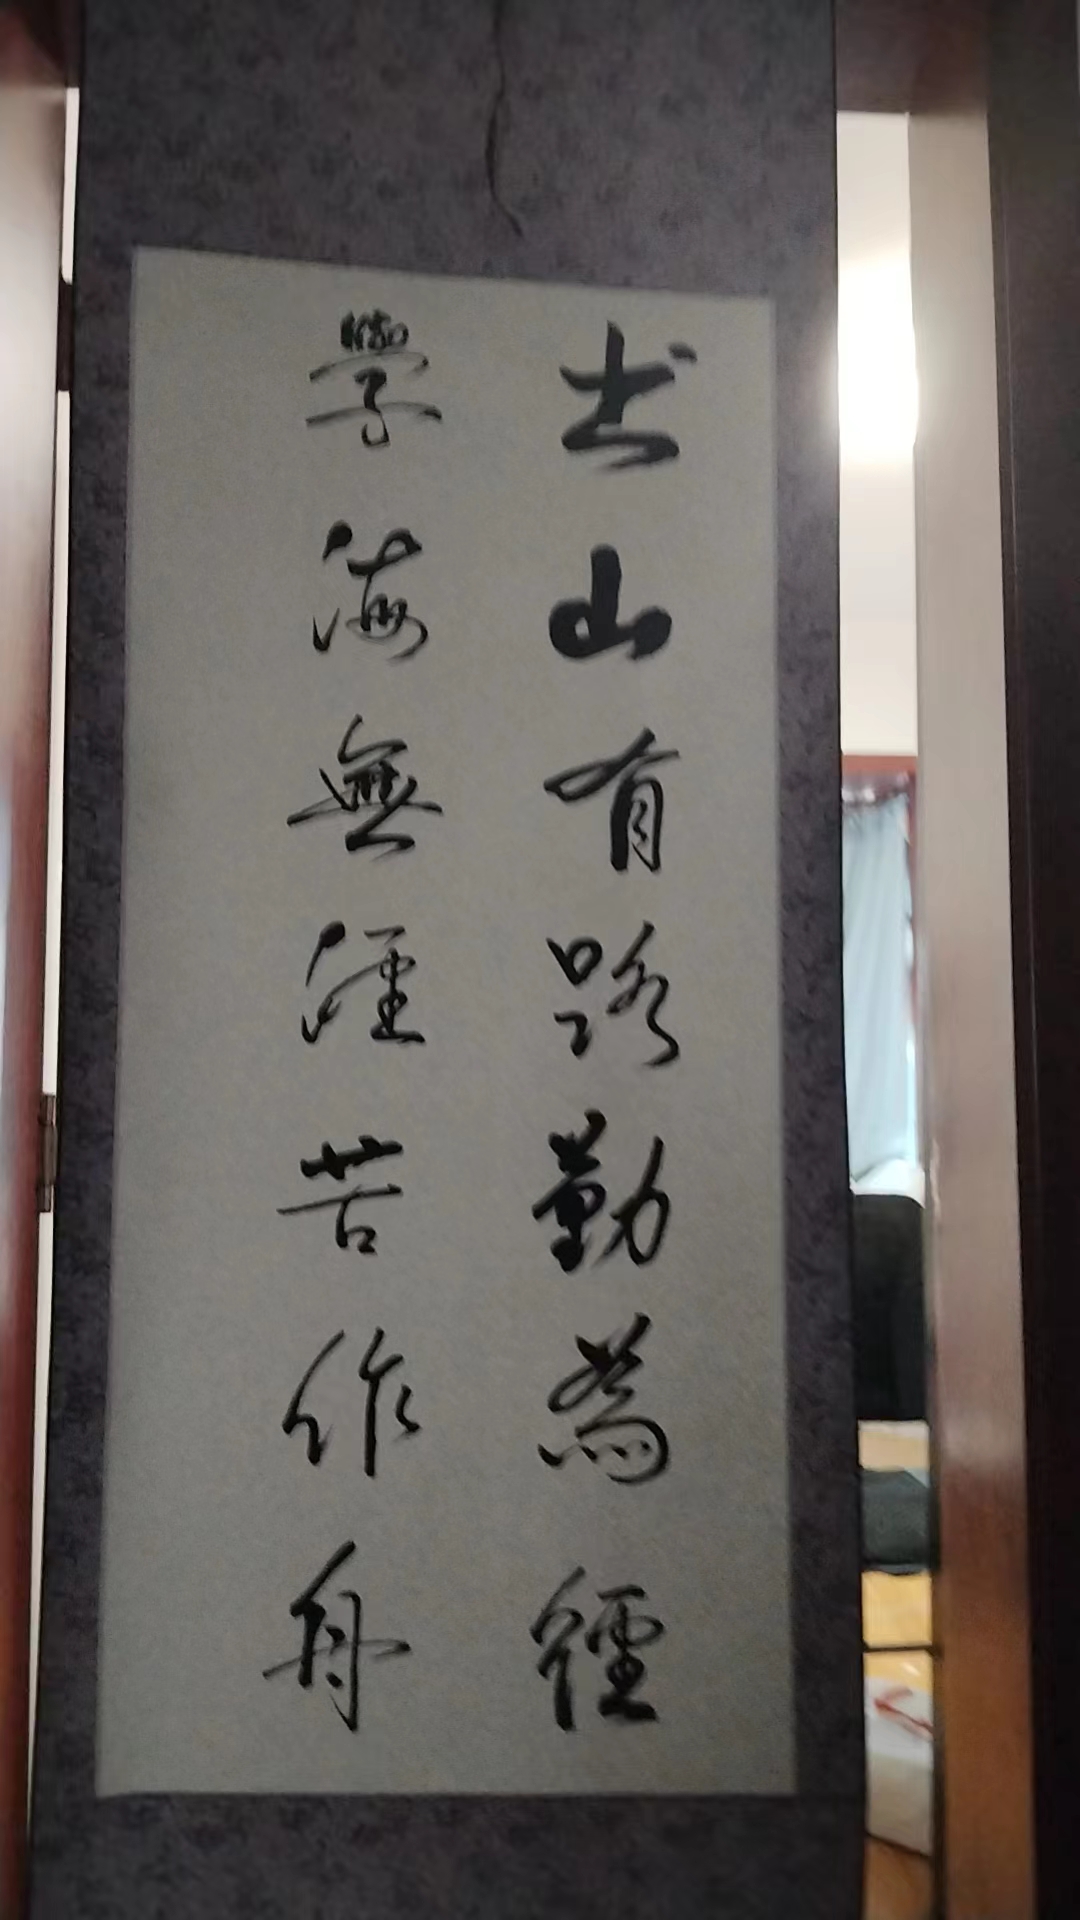 书山有路勤為徑
學海無涯苦作舟